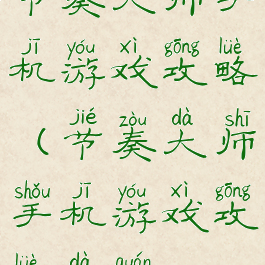 jī yóu xì gōng lüè
机游戏攻略
jié zòu dà shī
（节奏大师
shǒu jī yóu xì gōng
手机游戏攻
lüè dà quán